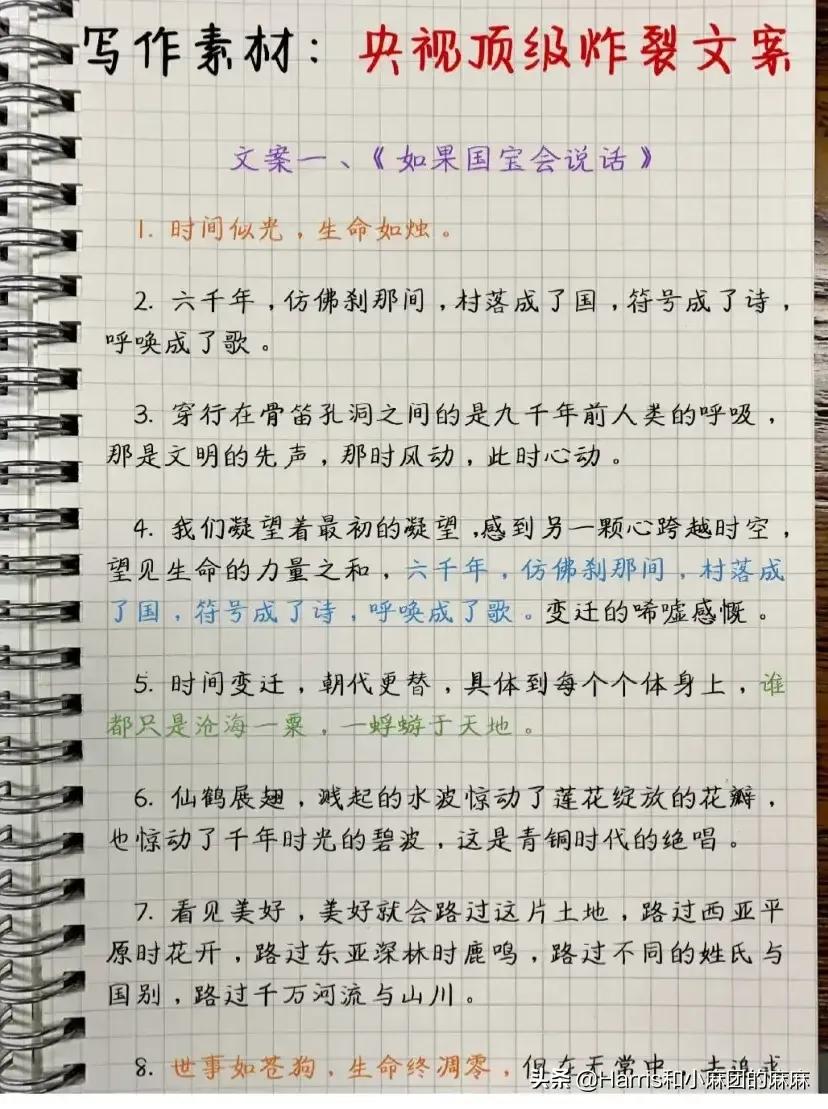 写作素材：央视顶级炸裂文案
文案一、《如果国宝会说话》
1. 时间似光，生命如烛。
2. 六千年，仿佛刹那间，村落成了国，符号成了诗，
呼唤成了歌。
3. 穿行在骨笛孔洞之间的是九千年前人类的呼吸，
那是文明的先声，那时风动，此时心动。
4. 我们凝望着最初的凝望，感到另一颗心跨越时空，
望见生命的力量之和，六千年，仿佛刹那间，村落成
了国，符号成了诗，呼唤成了歌。变迁的唏嘘感慨。
5. 时间变迁，朝代更替，具体到每个个体身上，谁
都只是沧海一粟，一蜉蝣于天地。
6. 仙鹤展翅，溅起的水波惊动了莲花绽放的花瓣，
也惊动了千年时光的碧波，这是青铜时代的绝唱。
7. 看见美好，美好就会路过这片土地，路过西亚平
原时花开，路过东亚深林时鹿鸣，路过不同的姓氏与
国别，路过千万河流与山川。
8. 世事如苍狗，生命终凋零，但在无常中，去追求
头条 @Harris和小麻团的麻麻